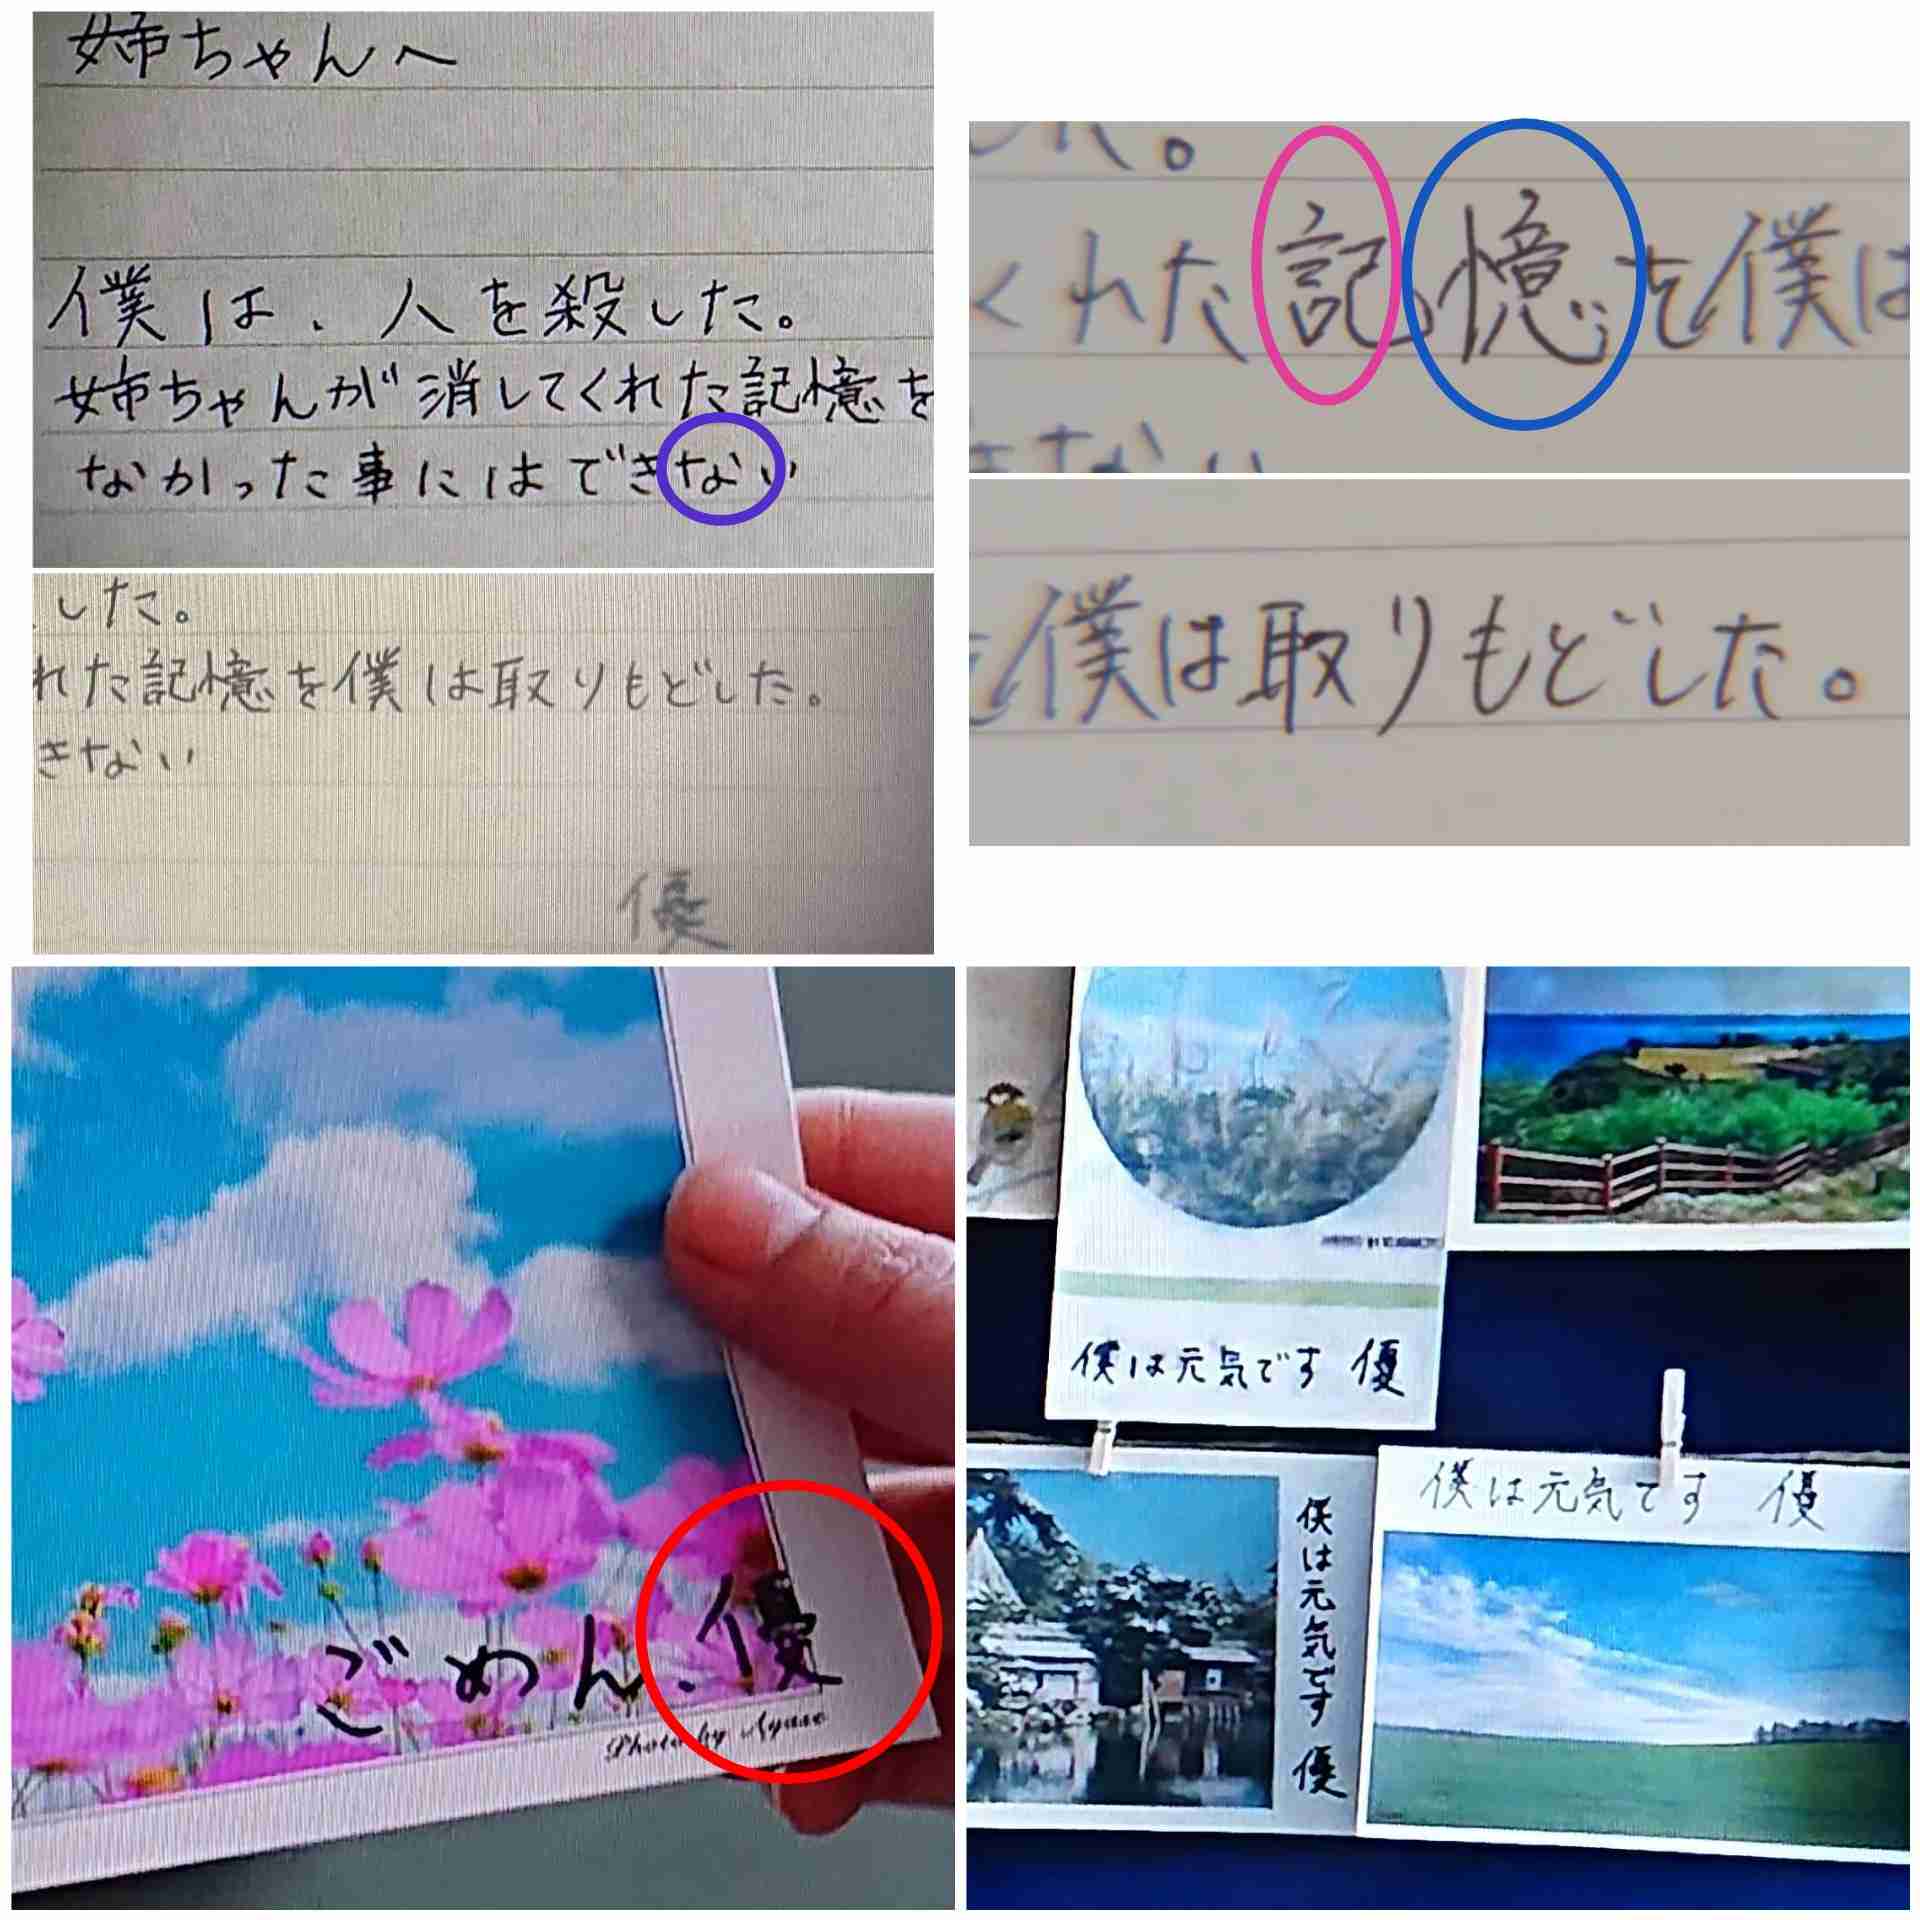 姉ちゃんへ
僕は、人を殺した。
姉ちゃんが消してくれた記憶を
なかった事にはできない
した。
れた記憶を僕は取りもどした。
きない
優
した。
くれた記憶を僕は
きない
を僕は取りもどした。
ごめん、優
Photo by Ayase
僕は元気です 優
僕は元気です 優
僕は元気です 優